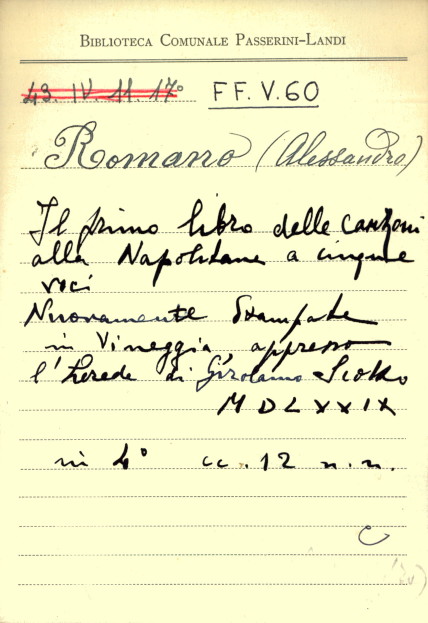 BIBLIOTECA COMUNALE PASSERINI-LANDI
43. IV. 11. 17° FF.V.60
Romano (Alessandro)
Il primo libro delle canzoni
alla Napolitane a cinque
voci
Nuovamente Stampate
in Vineggia appresso
l'herede di Girolamo Scotto
MDLXXIX
in 4° cc. 12 n.n.
C